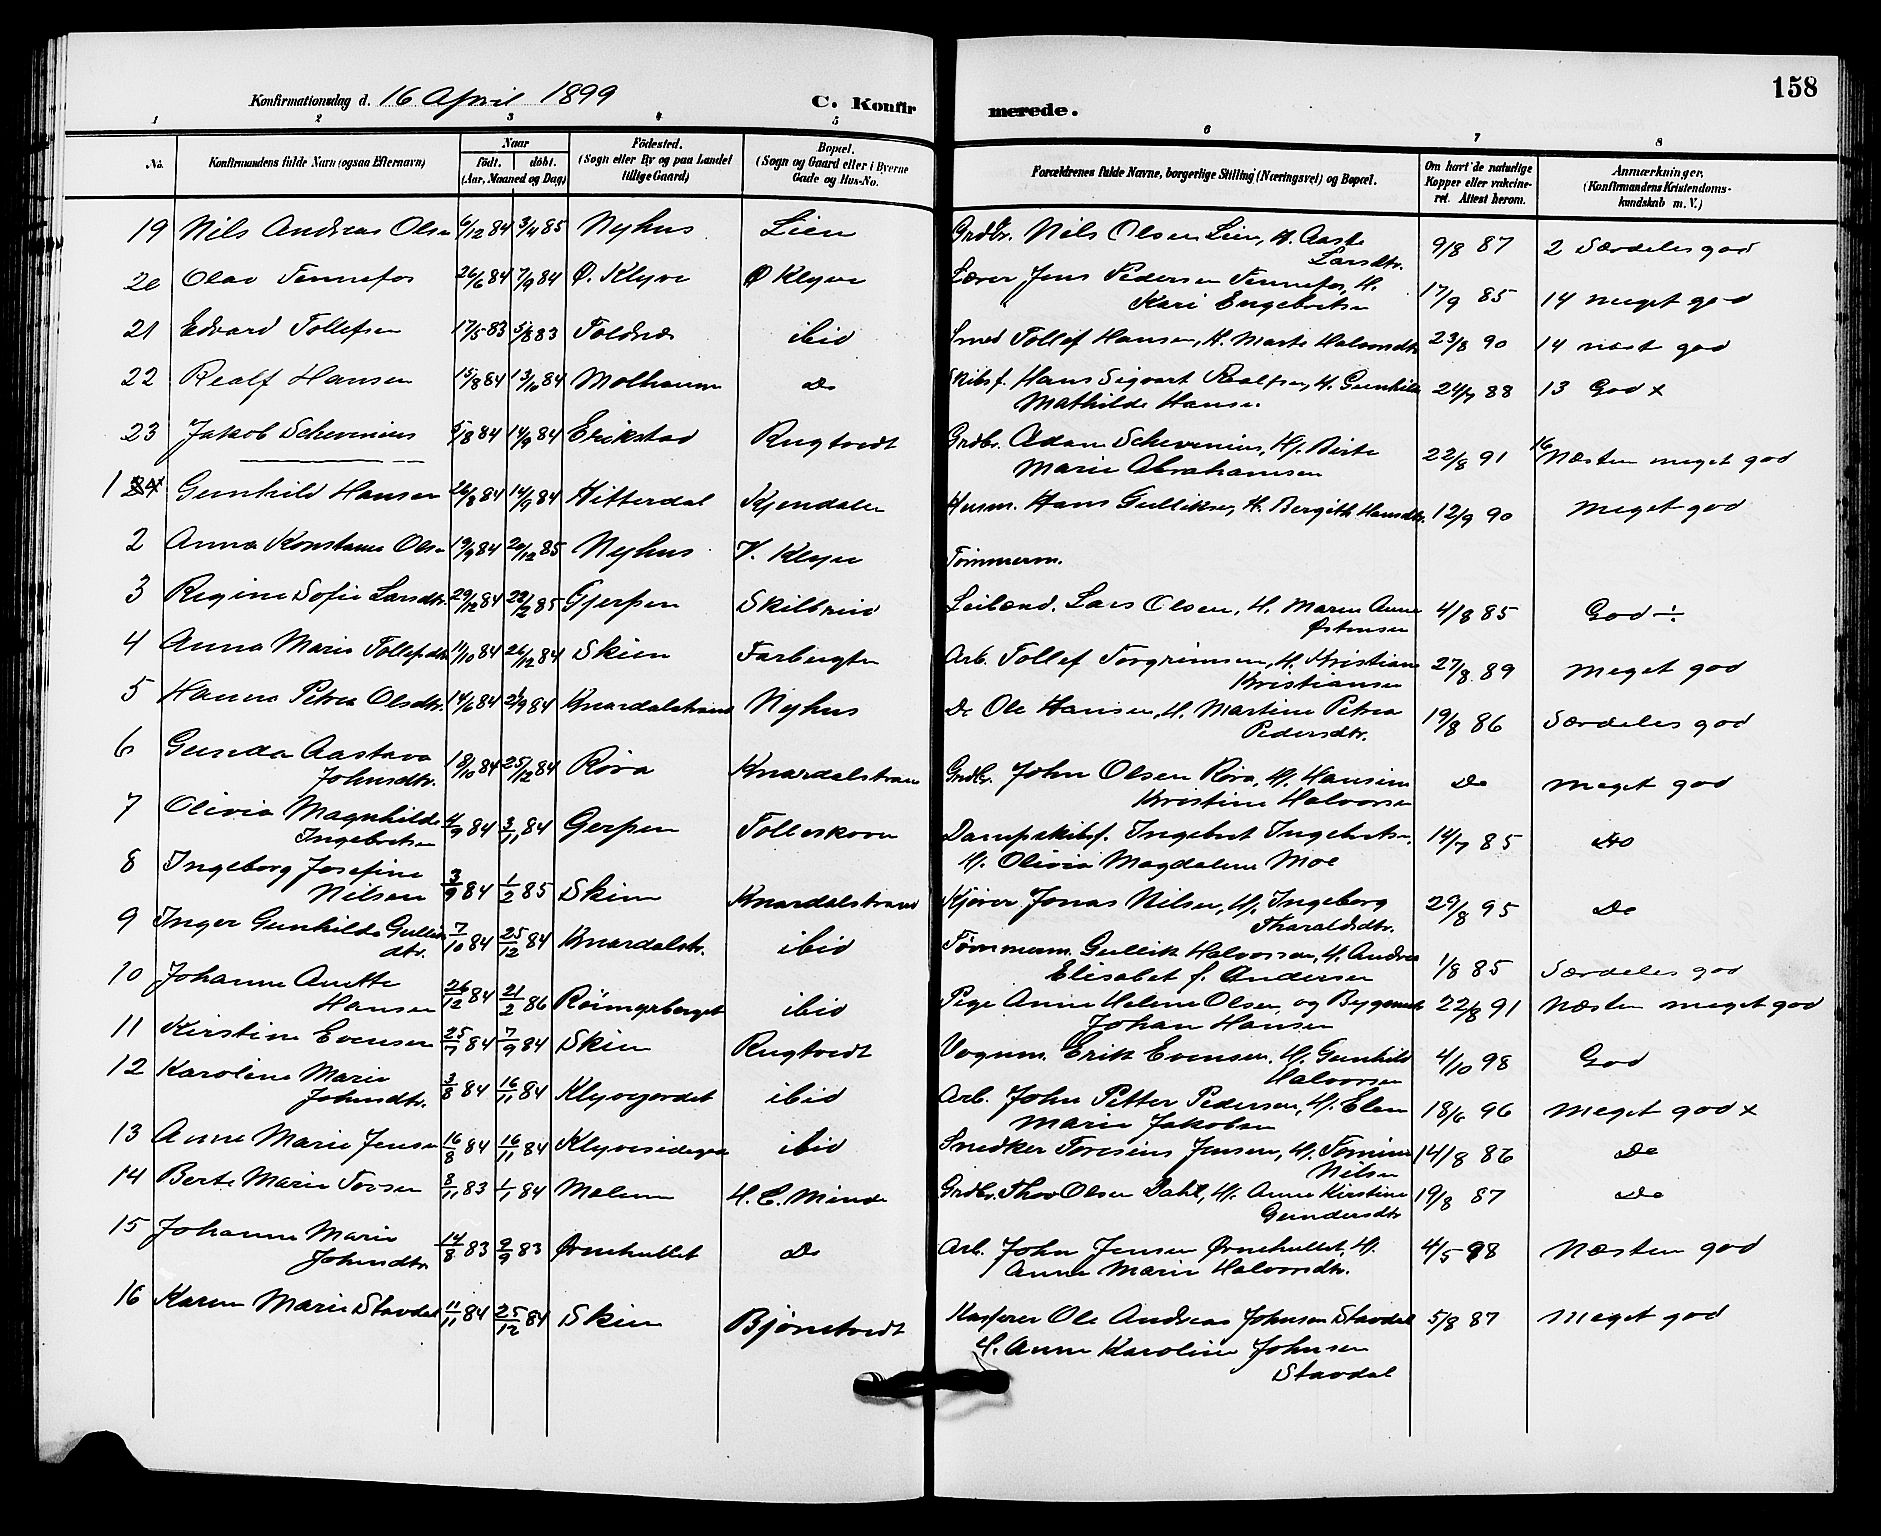 158
Konfirmationsdag d. 16 April 1899 C. Konfirmerede.
1 2 3 4 5 6 7 8
No. Konfirmandens fulde Navn (ogsaa Efternavn) Naar født. døbt. (Aar, Maaned og Dag) Fødested. (Sogn eller By og paa Landet tillige Gaard) Bopæl. (Sogn og Gaard eller i Byerne Gade og Hus-No. Forældrenes fulde Navne, borgerlige Stilling (Næringsvei) og Bopæl. Om havt de naturlige Kopper eller vakcineret. Attest herom. Anmærkninger. (Konfirmandens Kristendomskundskab m. V.)
19 Nils Andreas Olsen 6/12 84 3/4 85 Nyhus Lien Grdbr. Nils Olsen Lien, H. Aaste
Larsdtr. 9/8 87 2 Særdeles god
20 Olav Tennefos 26/6 84 7/9 84 Ø. Klyve Ø Klyve Lærer Jens Pedersen Tennefos, H.
Kari Engebretsen 17/9 85 14 meget god
21 Edvard Tollefsen 17/5 83 5/8 83 Foldnæs ibid Smed Tollef Hansen, H. Marte Halvorsdtr 23/8 90 14 næst god
22 Realf Hansen 15/8 84 13/10 84 Molhaugen Do Skibsf. Hans Sigvart Realfsen, H. Gunhild
Mathilde Hansen 24/7 88 13 God x
23 Jakob Schevenius 5/8 84 14/9 84 Erikstad Rugtvedt Grdbr. Adam Schevenius, H. Birte
Marie Abrahamsen 22/8 91 16 Næsten meget god
1 24 Gunhild Hansen 26/8 84 14/9 84 Hitterdal Kjendalen Husm. Hans Gulliksen, H. Bergith Hansdtr. 12/9 90 meget god
2 Anna Konstanse Olsen 19/9 84 20/12 85 Nyhus V. Klyve Tømmerm.
3 Regine Sofie Larsdtr. 29/12 84 22/2 85 Gjerpen Skilbred Leilænd. Lars Olsen, H. Maren Anne
Østensen 4/8 85 God ÷
4 Anna Marie Tollefsdtr 11/10 84 26/12 84 Skien Farbugten Arb. Tollef Torgrimsen, H. Kristiane
Kristiansen 27/8 89 meget god
5 Hanna Petrea Olsdtr. 14/6 84 21/9 84 Knardalstrand Nyhus Do Ole Hansen, H. Martine Petrea
Pedersdtr. 19/8 86 Særdeles god
6 Gunda Aastava
Johnsdtr. 18/10 84 25/12 84 Røra Knardalstran Grdbr. John Olsen Røra, H. Hansine
Kristine Halvorsen Do meget god
7 Olivia Magnhilde
Ingebretsen 4/9 84 3/11 84 Gerpen Follaskoven Dampskibsf. Ingebret Ingebretsen.
H. Olivia Magdalene Moe 14/7 85 Do
8 Ingeborg Josefine
Nilsen 3/9 84 1/2 85 Skien Knardalstrand Kjører Jonas Nilsen, H. Ingeborg
Tharaldsdtr. 29/8 95 Do
9 Inger Gunhilde Gulliks
dtr. 7/10 84 25/12 84 Knardalstr. ibid Tømmerm. Gullik Halvorsen, H. Andrea
Elisabet f. Andersen 1/8 85 Særdeles god
10 Johanne Anette
Hansen 26/12 84 21/2 86 Røimyrberget ibid Pige Anne Helene Olsen og Bygsmand
Johan Hansen 22/8 91 Næsten meget god
11 Kirstine Evensen 25/7 84 7/9 84 Skien Rugtvedt Vognm. Erik Evensen. H. Gunhild
Halvorsen 4/10 98 God
12 Karoline Marie
Johnsdtr. 3/8 84 16/11 84 Klyvejordet ibid Arb. John Petter Pedersen, H. Elen
Marie Jakobsen 18/6 96 meget god x
13 Anne Marie Jensen 16/8 84 16/11 84 Klyvesidegaden ibid Snedker Toresius Jensen, H. Tomine
Nilsen 14/8 86 Do
14 Berte Marie Torsen 8/11 83 1/1 84 Molenn H. C. Minde Grdbr. Thov Olsen Dahl, H. Anne Kirstine
Gundersdtr 19/8 87 Do
15 Johanne Marie
Johnsdtr. 14/8 83 9/9 83 Ørnehullet Do Arb. John Jensen Ørnehullet, H.
Anne Marie Halvorsdtr. 4/5 98 Næsten god
16 Karen Marie Stavdal 11/11 84 25/12 84 Skien Bjørntvedt Kasserer Ole Andreas Johnsen Stavdal
H. Anne Karoline Johnsen
Stavdal 5/8 87 Meget god